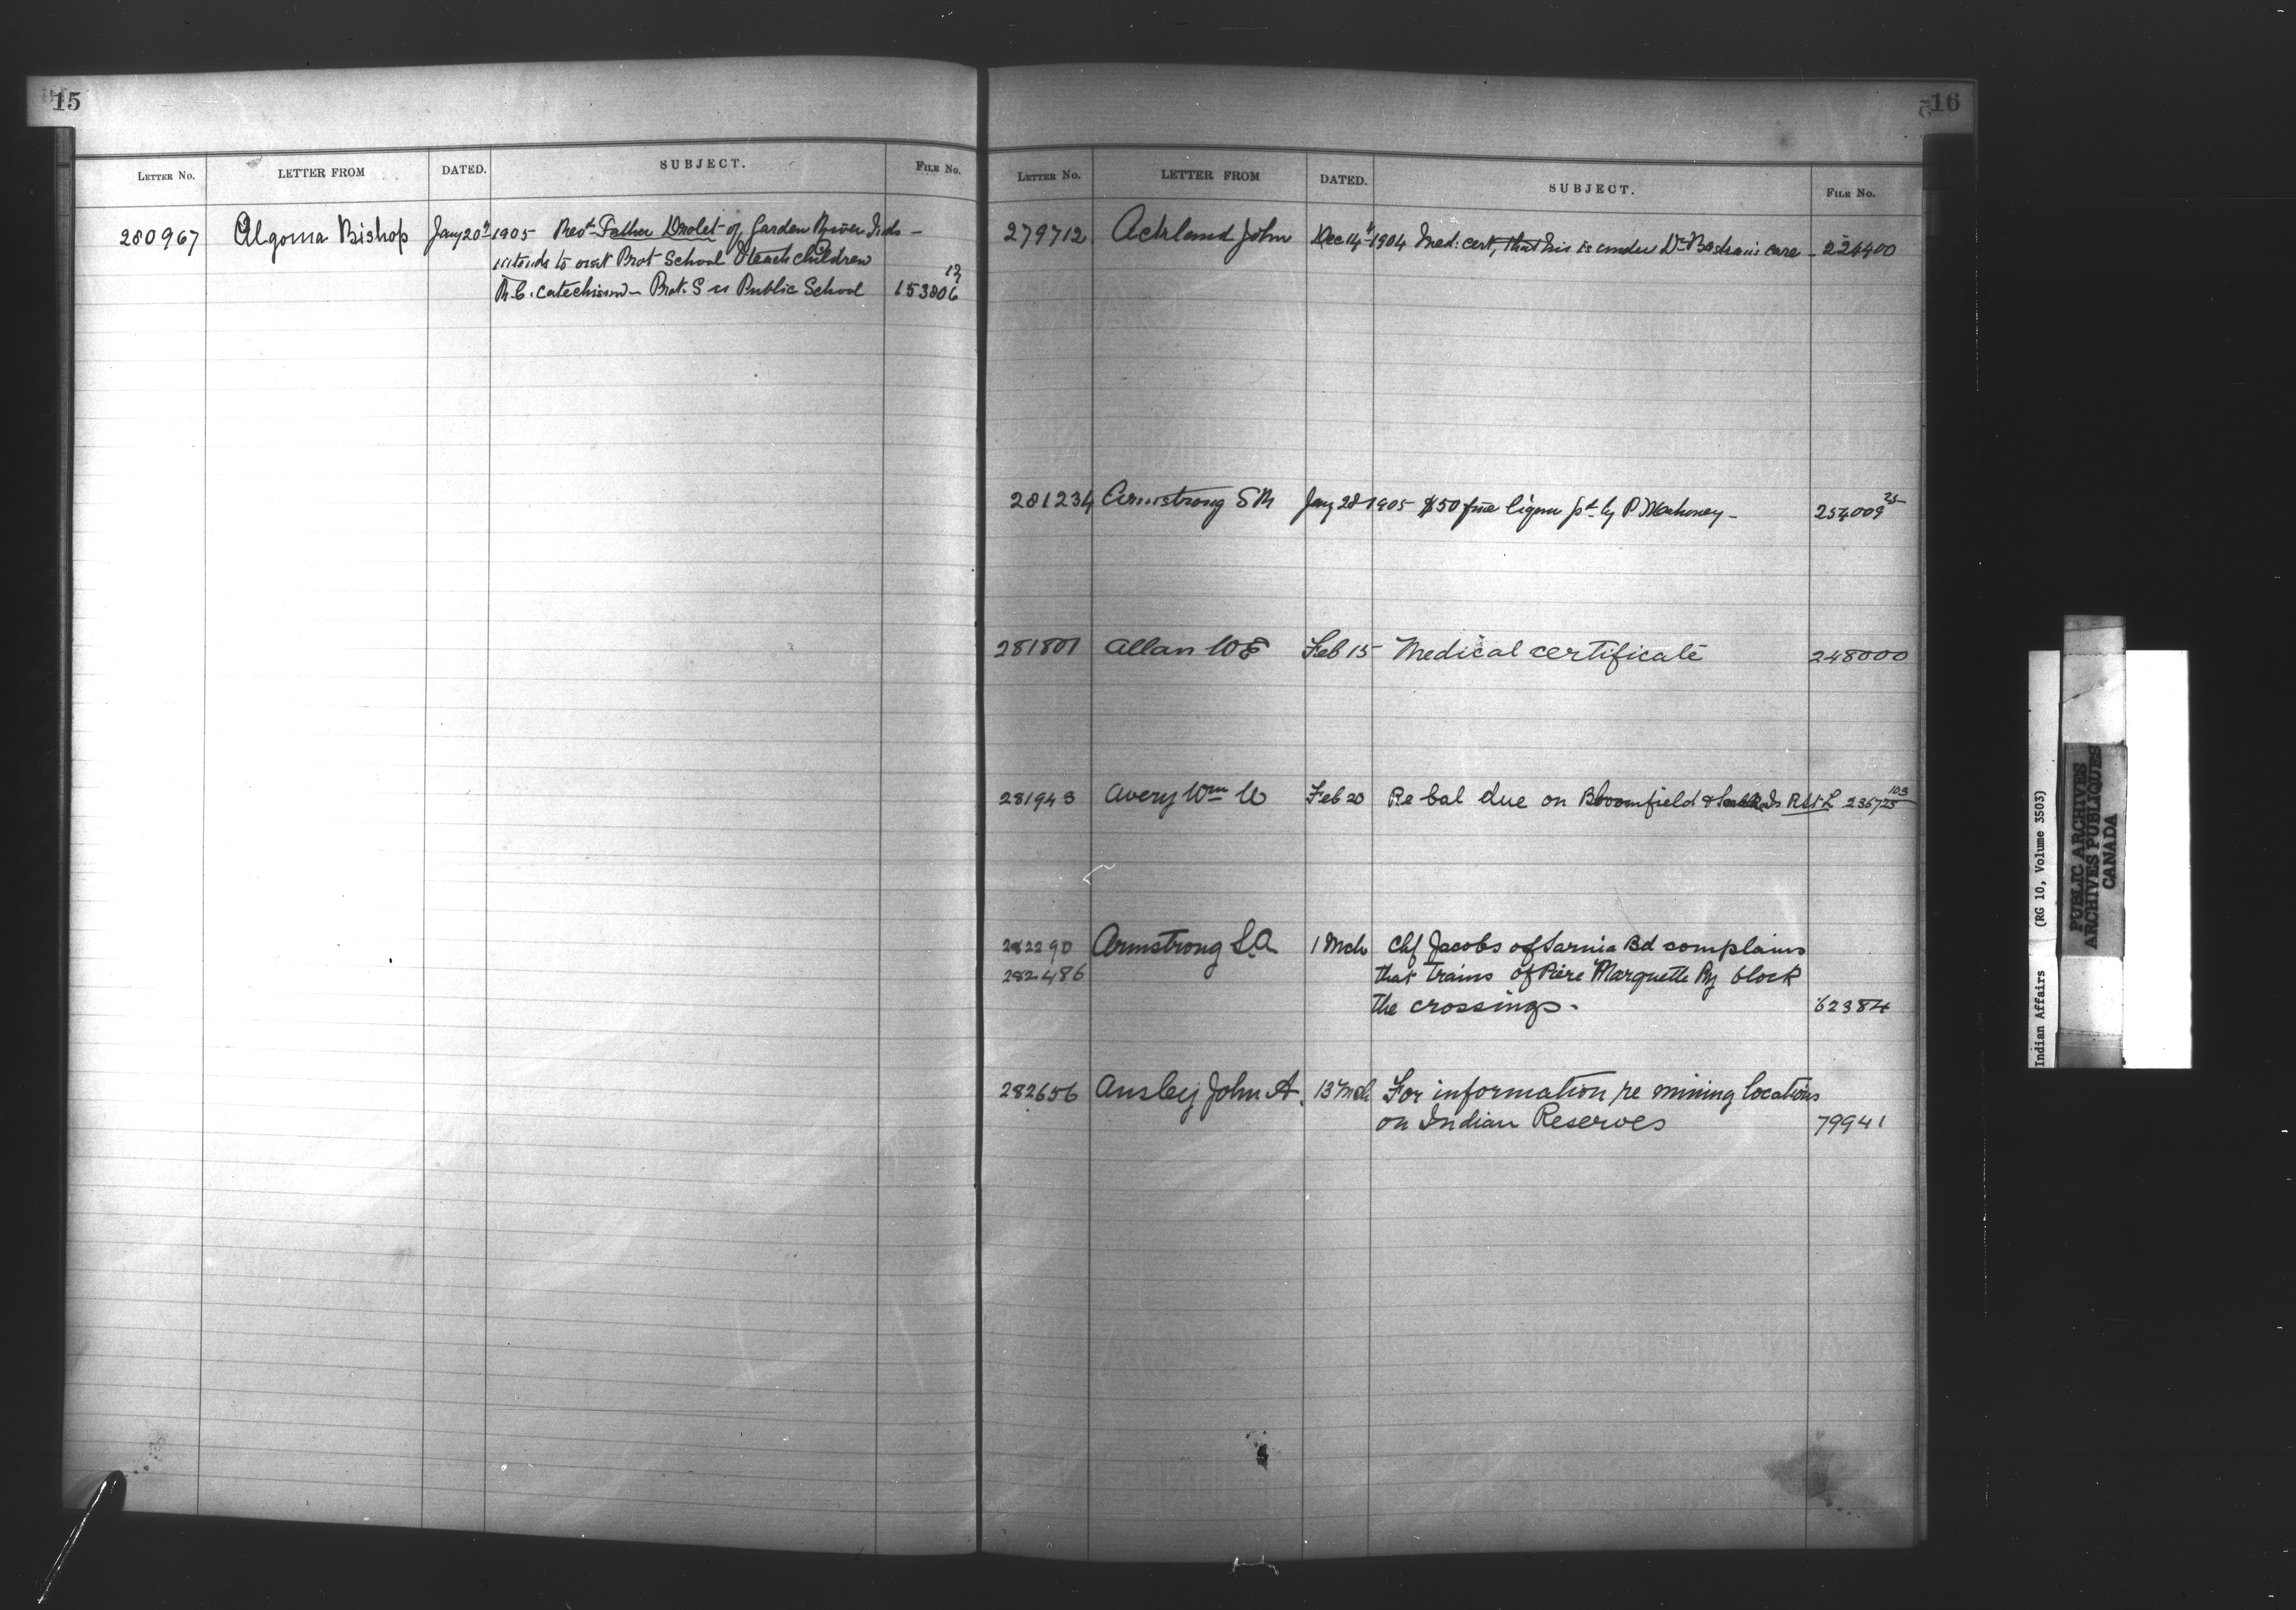 15
LETTER No. LETTER FROM DATED. SUBJECT. FILE No.
280967 Algoma Bishop Jany 20th 1905 Revd Father Drolet of Garden River Inds -
intends to visit Prot School & teach children
R.C. Catechism - Prot. S is Public School 153806 12
16
LETTER No. LETTER FROM DATED. SUBJECT. FILE No.
279712 Ackland John Dec 14th 1904 Med: cert, that his is under Dr care - 224400
281234 Armstrong S M Jany 28 1905 $50 fine liquor pd by P Mahoney - 254009 25
281801 Allan W E Feb 15 Medical certificate 248000
281943 Avery Wm W Feb 20 Re bal due on Bloomfield & Is 236725 103
282290 Armstrong S.A 1 Mch Chf Jacobs of Sarnia Bd complains
282486 that trains of Piere Marquette Ry block
the crossings. 62384
282656 Ansley John A. 13 Mch For information re mining locations
on Indian Reserves 79941
Indian Affairs (RG 10, Volume 3503)
PUBLIC ARCHIVES
ARCHIVES PUBLIQUES
CANADA